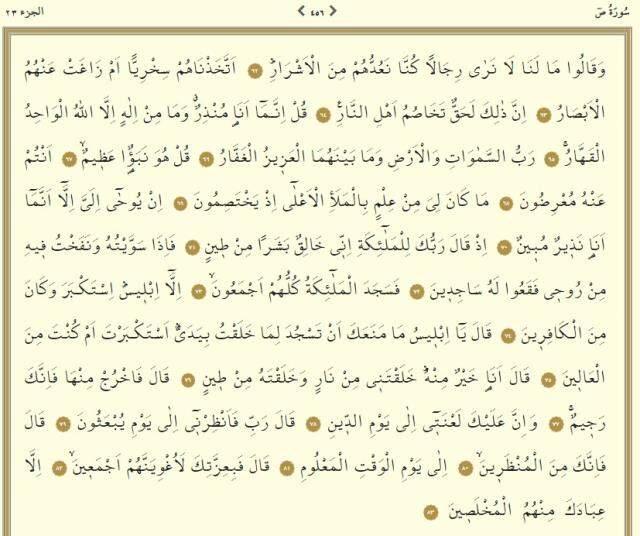 سُورَةُ صٓ ‹ ٤٥٦ › الجزء ٢٣
وَقَالُوا مَا لَنَا لَا نَرٰى رِجَالًا كُنَّا نَعُدُّهُمْ مِنَ الْاَشْرَارِۜ ﴿٦٢﴾ اَتَّخَذْنَاهُمْ سِخْرِيًّا اَمْ زَاغَتْ عَنْهُمُ
الْاَبْصَارُ ﴿٦٣﴾ اِنَّ ذٰلِكَ لَحَقٌّ تَخَاصُمُ اَهْلِ النَّارِ۟ ﴿٦٤﴾ قُلْ اِنَّمَٓا اَنَا۬ مُنْذِرٌۗ وَمَا مِنْ اِلٰهٍ اِلَّا اللّٰهُ الْوَاحِدُ
الْقَهَّارُۚ ﴿٦٥﴾ رَبُّ السَّمٰوَاتِ وَالْاَرْضِ وَمَا بَيْنَهُمَا الْعَزٖيزُ الْغَفَّارُ ﴿٦٦﴾ قُلْ هُوَ نَبَؤٌ۬ا عَظٖيمٌۙ ﴿٦٧﴾ اَنْتُمْ
عَنْهُ مُعْرِضُونَ ﴿٦٨﴾ مَا كَانَ لِيَ مِنْ عِلْمٍ بِالْمَلَأِ الْاَعْلٰٓى اِذْ يَخْتَصِمُونَ ﴿٦٩﴾ اِنْ يُوحٰٓى اِلَيَّ اِلَّٓا اَنَّمَٓا
اَنَا۬ نَذٖيرٌ مُبٖينٌ ﴿٧٠﴾ اِذْ قَالَ رَبُّكَ لِلْمَلٰٓئِكَةِ اِنّٖي خَالِقٌ بَشَرًا مِنْ طٖينٍ ﴿٧١﴾ فَاِذَا سَوَّيْتُهُ وَنَفَخْتُ فٖيهِ
مِنْ رُوحٖي فَقَعُوا لَهُ سَاجِدٖينَ ﴿٧٢﴾ فَسَجَدَ الْمَلٰٓئِكَةُ كُلُّهُمْ اَجْمَعُونَۙ ﴿٧٣﴾ اِلَّٓا اِبْلٖيسَۜ اِسْتَكْبَرَ وَكَانَ
مِنَ الْكَافِرٖينَ ﴿٧٤﴾ قَالَ يَٓا اِبْلٖيسُ مَا مَنَعَكَ اَنْ تَسْجُدَ لِمَا خَلَقْتُ بِيَدَيَّۜ اَسْتَكْبَرْتَ اَمْ كُنْتَ مِنَ
الْعَالٖينَ ﴿٧٥﴾ قَالَ اَنَا۬ خَيْرٌ مِنْهُۜ خَلَقْتَنٖي مِنْ نَارٍ وَخَلَقْتَهُ مِنْ طٖينٍ ﴿٧٦﴾ قَالَ فَاخْرُجْ مِنْهَا فَاِنَّكَ
رَجٖيمٌۚ ﴿٧٧﴾ وَاِنَّ عَلَيْكَ لَعْنَتٖٓي اِلٰى يَوْمِ الدّٖينِ ﴿٧٨﴾ قَالَ رَبِّ فَاَنْظِرْنٖٓي اِلٰى يَوْمِ يُبْعَثُونَ ﴿٧٩﴾ قَالَ
فَاِنَّكَ مِنَ الْمُنْظَرٖينَۙ ﴿٨٠﴾ اِلٰى يَوْمِ الْوَقْتِ الْمَعْلُومِ ﴿٨١﴾ قَالَ فَبِعِزَّتِكَ لَاُغْوِيَنَّهُمْ اَجْمَعٖينَۙ ﴿٨٢﴾ اِلَّا
عِبَادَكَ مِنْهُمُ الْمُخْلَصٖينَ ﴿٨٣﴾